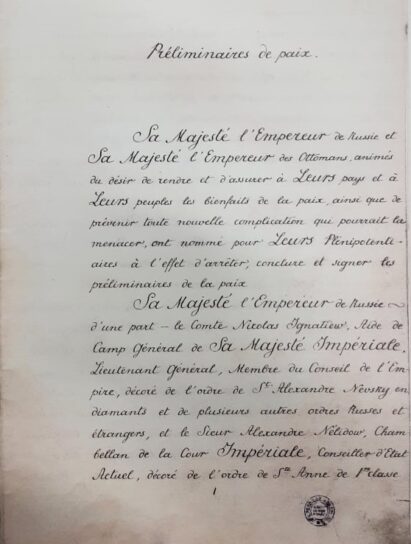 Préliminaires de paix.
Sa Majesté l'Empereur de Russie et
Sa Majesté l'Empereur des Ottomans, animés
du désir de rendre et d'assurer à Leurs pays et à
Leurs peuples les bienfaits de la paix, ainsi que de
prévenir toute nouvelle complication qui pourrait la
menacer, ont nommé pour Leurs Plénipotenti-
aires à l'effet d'arrêter, conclure et signer les
préliminaires de la paix
Sa Majesté l'Empereur de Russie
d'une part – le Comte Nicolas Ignatiew, Aide de
Camp Général de Sa Majesté Impériale,
Lieutenant Général, Membre du Conseil de l'Em-
pire, décoré de l'ordre de St Alexandre Nevsky en
diamants et de plusieurs autres ordres Russes et
étrangers, et le Sieur Alexandre Nélidow, Cham
bellan de la Cour Impériale, Conseiller d'Etat
Actuel, décoré de l'ordre de Ste Anne de 1re classe
1